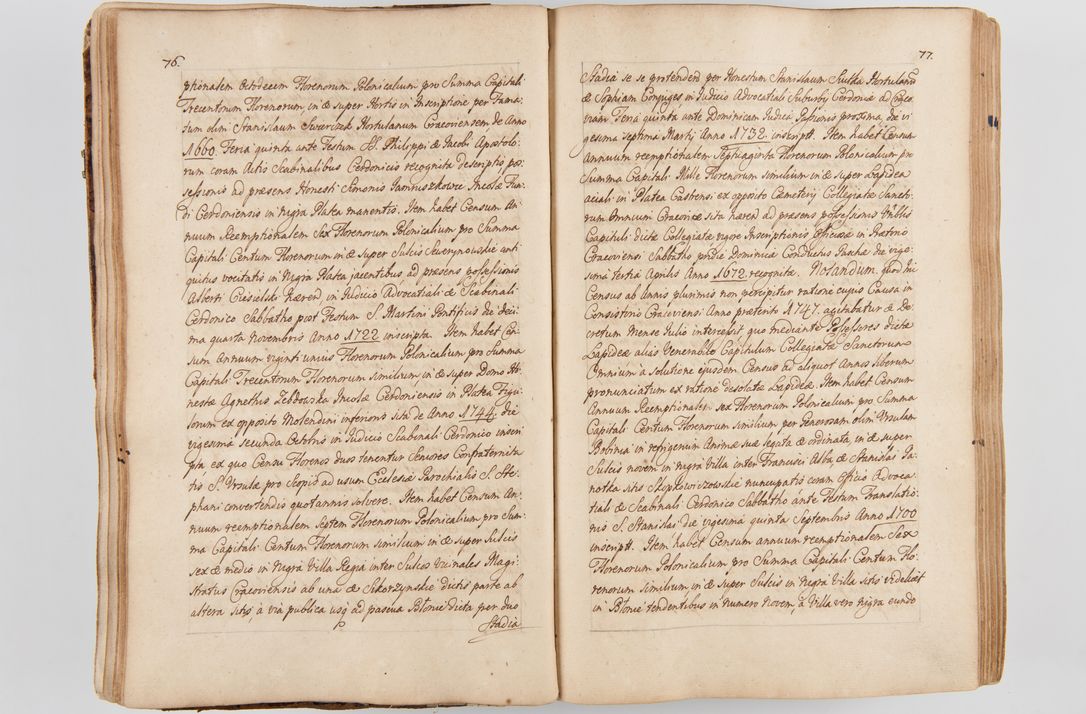 76.
ptionalem Octodecem Florenorum Polonicalium pro Summa Capitali
Trecentorum Florenorum, in & super Hortis in Inscriptione per Fama-
tum olim Stanislaum Swierczek Hortulanum Cracoviensem de Anno
1660. Feria quinta ante Festum SS. Philippi & Jacobi Apostolo-
rum coram Actis Scabinalibus Cerdonicis recognita descriptis pos-
sessionis ad præsens Honesti Simonis Januszkowic Incolæ Fun-
di Cerdoniensis in Nigra Platea manentis. Item habet Censum An-
nuum Reemptionalem Sex Florenorum Polonicalium pro Summa
Capitali Centum Florenorum in & super Sulcis Sewerynowskie anti-
quitus vocitatis in Nigra Platea jacentibus ad præsens possessionis
Alberti Ciesielski hæred in Judicio Advocatiali & Scabinali
Cerdonico Sabbatho post Festum S. Martini Pontificis die deci-
ma quarta Novembris Anno 1722 inscripta. Item habet Cen-
sum Annuum viginti unius Florenorum Polonicalium pro Summa
Capitali Trecentorum Florenorum similium, in & super Domo Ho-
nestæ Agnethis Zebrowska Incolæ Cerdoniensis in Platea Figu-
lorum ex opposito Molendini inferioris sita de Anno 1744. die
vigesima secunda Octobris in Judicio Scabinali Cerdonico inscri-
pta ex quo Censu Florenos duos tenentur Seniores Confraternita-
tis S. Ursulæ pro Scopis ad usum Ecclesiæ Parochialis S. Ste-
phani convertendis quotannis solvere. Item habet Censum An-
nuum reemptionalem Septem Florenorum Polonicalium pro Sum-
ma Capitali Centum Florenorum similium in & super Sulcis
sex & medio in Nigra Villa Regia inter Sulcos Magi-
stratus Cracoviensis ab una & Sikorzynskie dictis parte ab
altera sitis, à via publica usq ad pascua Blonie dicta per duo
Stadia
77.
Stadia se se protenden per Honestum Stanislaum Hortulanum
& Sophiam Conjuges in Judicio Advocatiali Suburby Cerdoniæ ad Craco-
viam Feria quinta ante Dominicam Judica Passionis proxima, die vi-
gesima septima Marti Anno 1732. inscript. Item habet Censum
Annuum reemptionalem Septuaginta Florenorum Polonicalium pro
Summa Capitali Mille Florenorum similium in & super Lapidea
aciali in Platea Castrensi ex opposito Cæmetery Collegiatæ Sancto-
rum Omnium Cracoviæ sita hæren ad præsens possessionis Vnblis
Capituli dictæ Collegiatæ vigore Inscriptionis Officiosæ in Prætorio
Cracoviensi Sabbatho pridie Dominicæ Conductus Paschæ die vige-
sima tertia Aprilis Anno 1672. recognita. Notandum, quod hic
Census ab Annis plurimis non percipitur ratione cujus Causa in
Consistorio Cracoviensi Anno præterito 1747. agitabatur & De-
cretum Mense Julio intercessit quo mediante Possessores dictæ
Lapideæ aliàs Venerabile Capitulum Collegiatæ Sanctorum
Omnium à solutione ejusdem Census ad aliquot Annos liberum
pronunciatum ex ratione desolatæ Lapideæ. Item habet Censum
Annuum Reemptionalem sex Florenorum Polonicalium pro Summa
Capitali Centum Florenorum similium per Generosam olim Ursulam
Bobinia in refrigerium Animæ suæ legata & ordinata, in & super
Sulcis novem in Nigra Villa inter Francisci Alba, & Stanislai Pa-
notka sitis nuncupatis coram Officio Advoca-
tiali & Scabinali Cerdonico Sabbatho ante Festum Translatio-
nis S. Stanislai die vigesima quinta Septembris Anno 1700
inscript. Item habet Censum annuum reemptionalem Sex
Florenorum Polonicalium pro Summa Capitali Centum Flo-
renorum similium in & super Sulcis in Nigra Villa sitis videlicet
in Blonie tendentibus in numero Novem, à Villa vero Nigra eundo